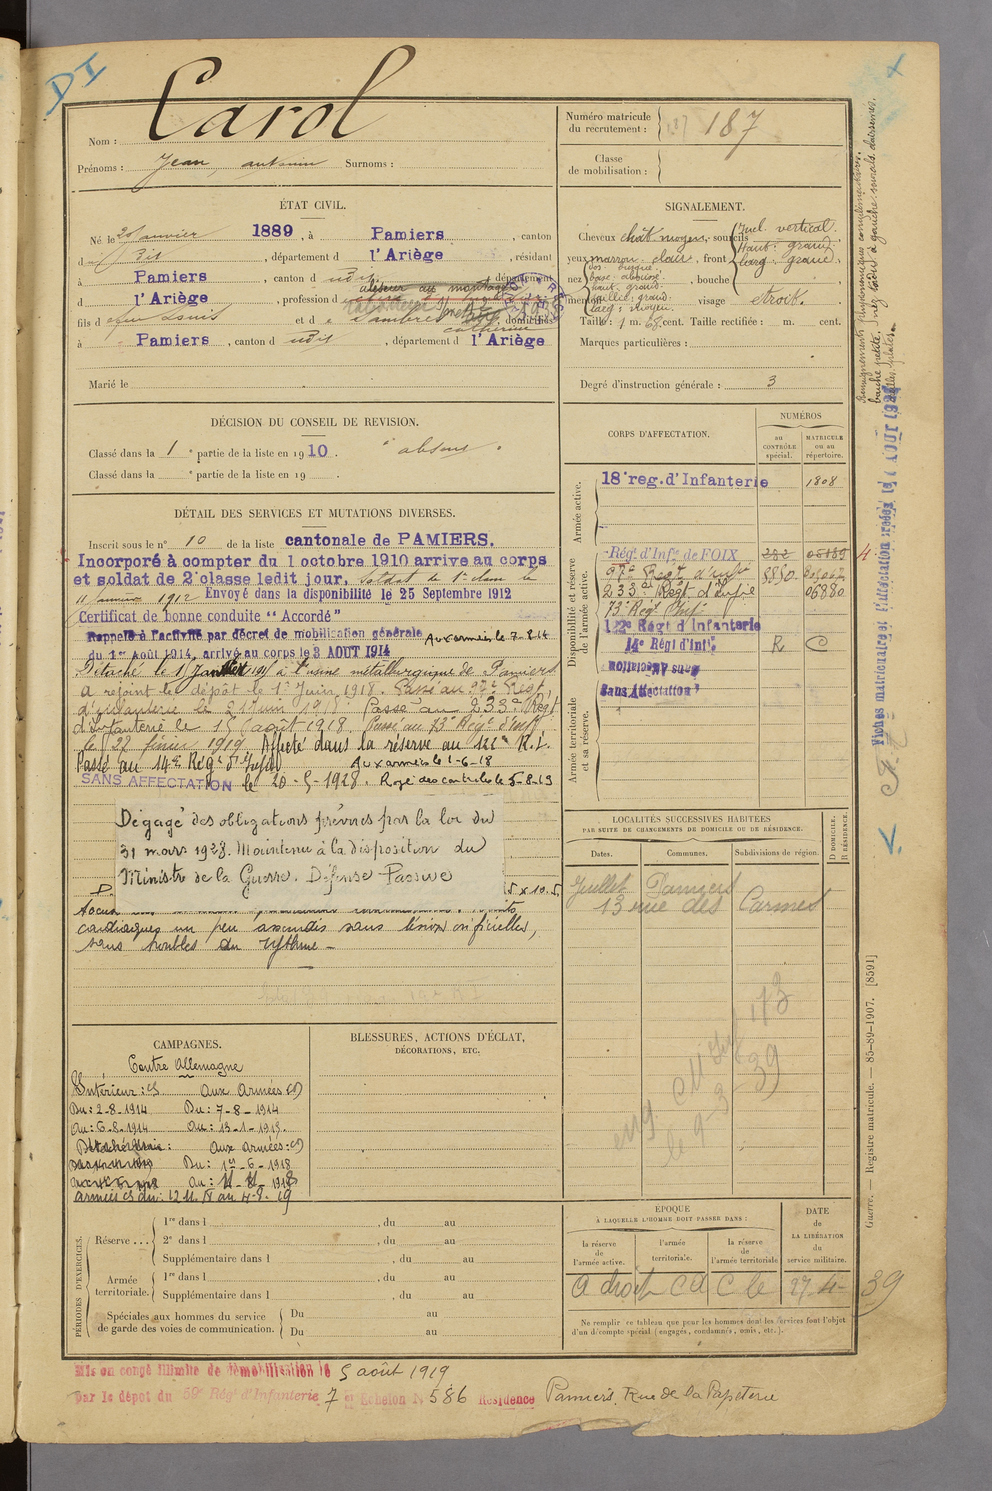 DI
Nom : Carol
Prénoms : Jean, antonin Surnoms :
Numéro matricule du recrutement : 187
Classe de mobilisation :
ÉTAT CIVIL.
Né le 20 Janvier 1889, à Pamiers, canton
d dit, département d l'Ariège, résidant
à Pamiers, canton d udit, département
d l'Ariège, profession d
fils d feu Louis et d , domiciliés
à Pamiers, canton d udit, département d l'Ariège
Marié le
SIGNALEMENT.
Cheveux chât. moyen, sourcils
yeux marron clair, front
Incl. vertical.
Haut. grand
Larg. grand
nez
dos busqué
haut. grand
, bouche
menton
saillie: grand
larg: moyen
visage étroit.
Taille: 1 m. 68 cent. Taille rectifiée : m. cent.
Marques particulières :
Degré d'instruction générale : 3
Renseignements physionomiques complémentaires:
DÉCISION DU CONSEIL DE REVISION.
Classé dans la 1e partie de la liste en 1910. "absent"
Classé dans la e partie de la liste en 19 .
DÉTAIL DES SERVICES ET MUTATIONS DIVERSES.
Inscrit sous le n° 10 de la liste cantonale de PAMIERS.
Incorporé à compter du 1 octobre 1910 arrive au corps
et soldat de 2e classe ledit jour, Soldat de 1e classe le
11 janvier 1912 Envoyé dans la disponibilité le 25 Septembre 1912
Certificat de bonne conduite "Accordé"
Rappelé à l'activité par décret de mobilisation générale Aux armées le 7-8-14
du 1er Août 1914, arrivé au corps le 3 AOUT 1914
Détaché le 1 Janvier 1915 à l'usine métallurgique de Pamiers
a rejoint le dépôt le 1er Juin 1918. Passé au 97e Régt
d'infanterie le 21 Juin 1918 Passé au 233e Régt
d'Infanterie le 15 août 1918. Passé au 73e Régt d'Inf
le 22 février 1919 Affecté dans la réserve au 122e R.I.
Passé au 14e Régt d'Infie Aux armées le 1-6-18
SANS AFFECTATION le 20-5-1928. Rayé des contrôles le 5-8-19
Dégagé des obligations prévues par la loi du
31 mars 1928. Maintenu à la disposition du
Ministre de la Guerre. Défense Passive
Aucun
cardiaques un peu assourdis sans lésions orificielles,
sans troubles du rythme -
CORPS D'AFFECTATION.
NUMÉROS
au CONTRÔLE spécial.
MATRICULE ou au répertoire.
Armée active.
18e reg. d'Infanterie 1808
Disponibilité et réserve de l'armée active.
Régt d'Infie de FOIX 05189
97e Régt d'infie 8850
233e Régt d'Infie 06880
73e Régt Infie
122e Régt d'Infanterie
14e Régt d'Infie R C
Sans Affectation
Armée territoriale et sa réserve.
Sans Affectation
LOCALITÉS SUCCESSIVES HABITÉES
PAR SUITE DE CHANGEMENTS DE DOMICILE OU DE RÉSIDENCE.
Dates. Communes. Subdivisions de région. D DOMICILE. R RÉSIDENCE.
Juillet Pamiers
13 rue des Carmes
le 9-3-39
CAMPAGNES.
Contre Allemagne
Intérieur: CS Aux Armées CD
Du: 2-8-1914 Du: 7-8-1914
Au: 6-8-1914 Au: 13-1-1915.
Aux armées: CD
Du: 1er-6-1918
Au: 11-11-1918
Armées CS du: 12.11.18 au 4-8-19
BLESSURES, ACTIONS D'ÉCLAT,
DÉCORATIONS, ETC.
PÉRIODES D'EXERCICES.
Réserve ...
1re dans l , du au
2e dans l , du au
Supplémentaire dans l , du au
Armée territoriale.
1re dans l , du au
Supplémentaire dans l , du au
Spéciales aux hommes du service de garde des voies de communication.
Du au
Du au
ÉPOQUE
À LAQUELLE L'HOMME DOIT PASSER DANS :
la réserve de l'armée active.
l'armée territoriale.
la réserve de l'armée territoriale
DATE de LA LIBÉRATION du service militaire.
A droit CA C le 27-4-39
Ne remplir ce tableau que pour les hommes dont les services font l'objet
d'un décompte spécial (engagés, condamnés, omis, etc.).
Guerre. — Registre matricule. — 85-89-1907. [8591]
Mis en congé illimité de démobilisation le 5 août 1919
par le dépôt du 59e Régt d'Infanterie 7e Echelon N° 586 Résidence Pamiers, Rue de la Papeterie